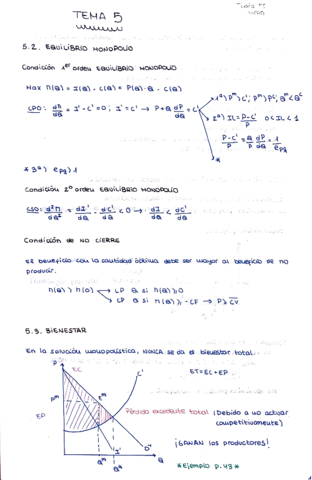 TEMA 5
5.2. EQUILIBRIO MONOPOLIO
Condición 1er orden EQUILIBRIO MONOPOLIO
Max π(Q) = I(Q) - C(Q) = P(Q)·Q - C(Q)
CPO: dπ/dQ = I' - C' = 0 ; I' = C' → P + Q dP/dQ = C'
1º) P^m > C' ; P^m > P^c ; Q^m < Q^c
2º) IL = P-C'/P 0 ≤ IL < 1
P-C'/P = Q/P dP/dQ = 1/εpq
*
* 3º) εpq > 1
Condición 2º orden EQUILIBRIO MONOPOLIO
CSO: d²π/dQ² = dI'/dQ - dC'/dQ < 0 → dI'/dQ < dC'/dQ
Condición de NO CIERRE
El beneficio con la cantidad óptima debe ser mayor al beneficio de no
producir.
π(Q) > π(0) → LP Q si π(Q) ≥ 0
→ CP Q si π(Q) ≥ - CF → P ≥ CV
5.3. BIENESTAR
En la solución monopolística, NUNCA se da el bienestar total.
P
EC
C'
ET = EC + EP
P^m
E^m
EP
Pérdida excedente total (Debido a no actuar
competitivamente)
¡GANAN los productores!
I'
D
Q^m
Q
*Ejemplo p.48*
1